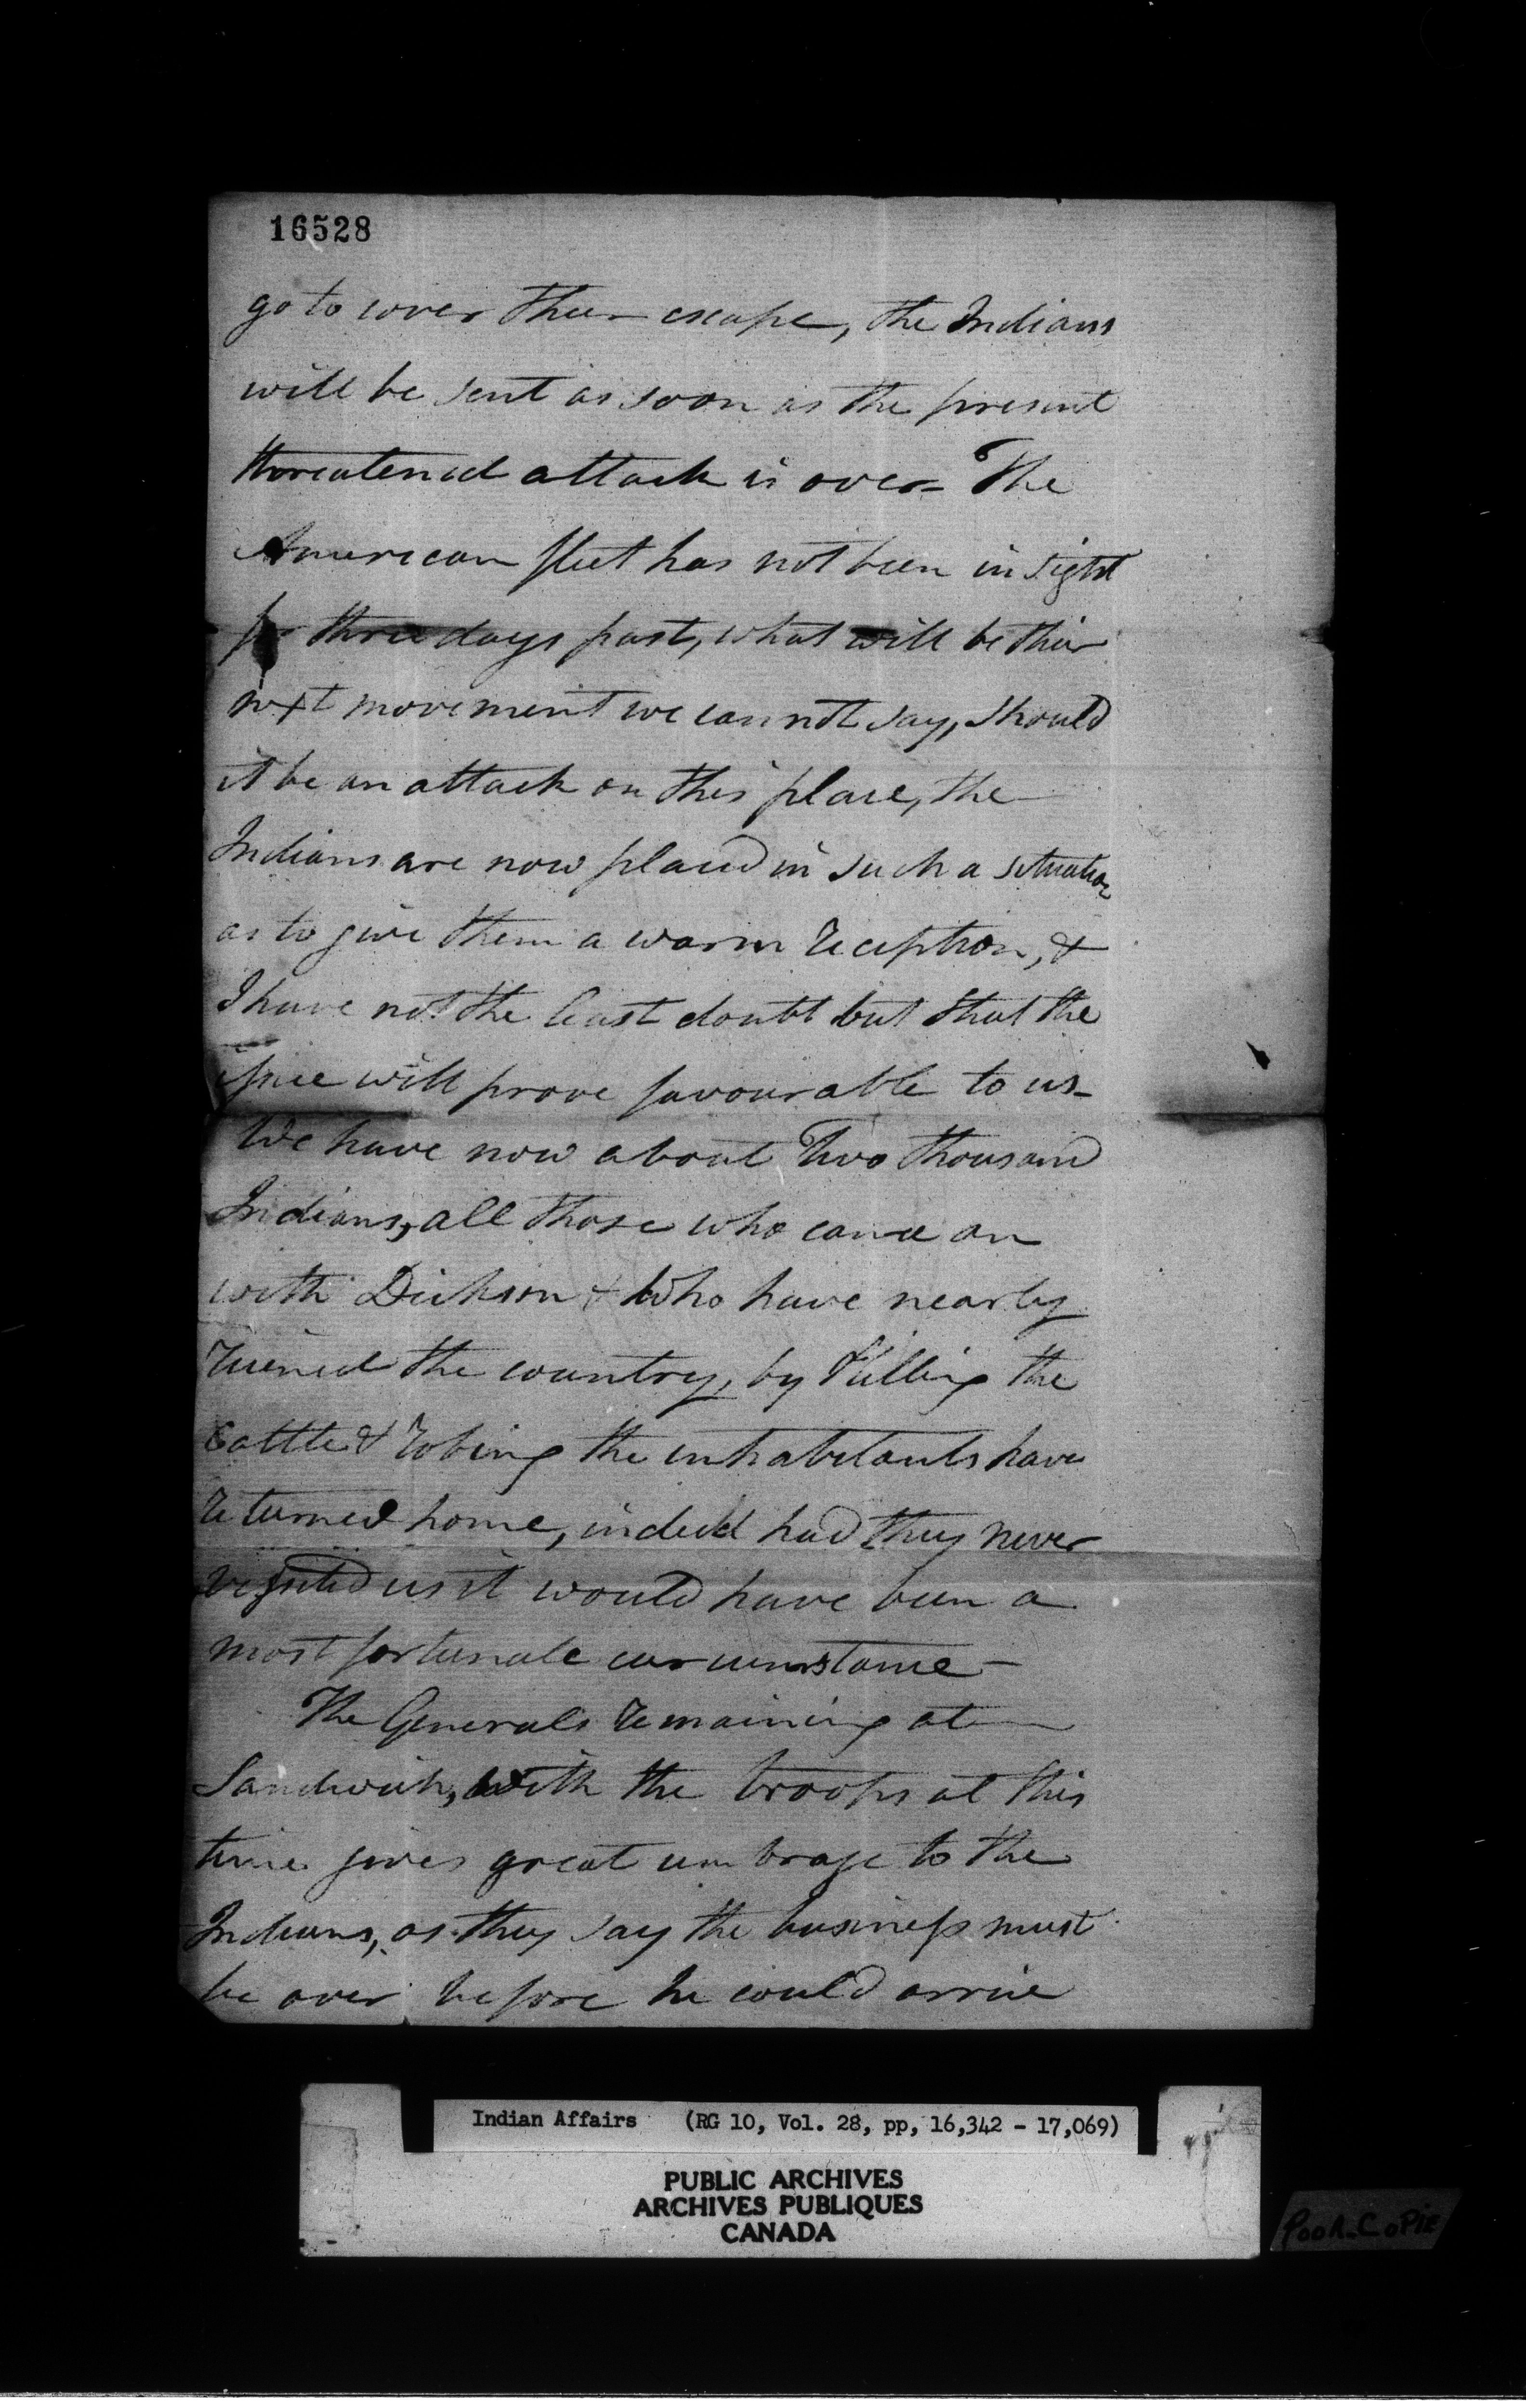 16528
go to cover their escape, the Indians
will be sent as soon as the present
threatened attack is over – The
American fleet has not been in sight
for three days past, what will be their
next movement we can not say, should
it be an attack on this place, the
Indians are now placed in such a situation
as to give them a warm reception, &
I have not the least doubt but that the
issue will prove favourable to us –
We have now about Two thousand
Indians, all those who came on
with Dickson & who have nearly
ruined the country, by Killing the
Cattle & robing the inhabitants have
returned home, indeed had they never
visited us it would have been a
most fortunate circumstance –
The Generals remaining at
Sandwich, with the troops at this
time gives great umbrage to the
Indians, as they say the business must
be over before he could arrive
Indian Affairs (RG 10, Vol. 28, pp, 16,342 - 17,069)
PUBLIC ARCHIVES
ARCHIVES PUBLIQUES
CANADA
POOR COPIE